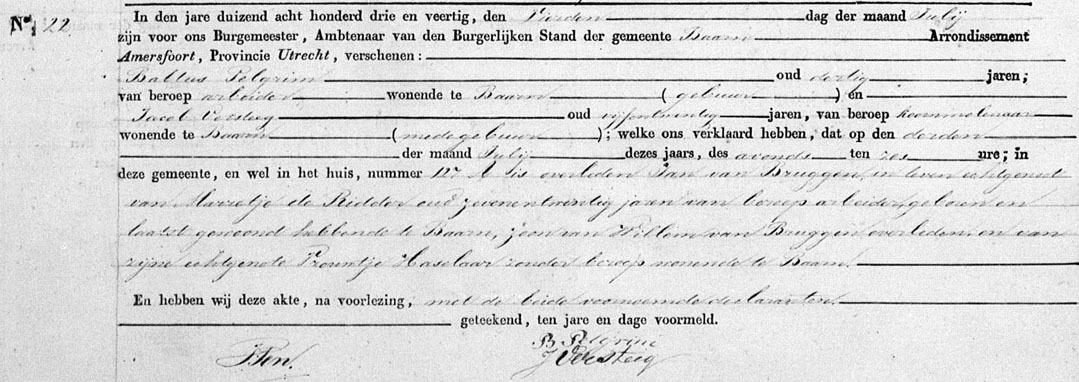 No. 22
In den jare duizend acht honderd drie en veertig, den Vierden dag der maand Julij
zijn voor ons Burgemeester, Ambtenaar van den Burgerlijken Stand der gemeente Baarn Arrondissement
Amersfoort, Provincie Utrecht, verschenen:
Baltus Pelgrim oud dertig jaren;
van beroep arbeider wonende te Baarn (gebuur) en
Jacob Versteeg oud vijfentwintig jaren, van beroep koornmolenaar
wonende te Baarn (mede gebuur); welke ons verklaard hebben, dat op den derden
der maand Julij dezes jaars, des avonds ten zes ure; in
deze gemeente, en wel in het huis, nummer 127 A is overleden Jan van Bruggen, in leven echtgenoot
van Marretje de Ridder oud zevenentwintig jaren van beroep arbeider, geboren en
laatst gewoond hebbende te Baarn, zoon van Willem van Bruggen overleden, en van
zijne echtgenote Trouwtje Haselaar zonder beroep wonende te Baarn.
En hebben wij deze akte, na voorlezing, met de beide voornoemde declaranten
geteekend, ten jare en dage voormeld.
B Pelgrim
J Versteeg